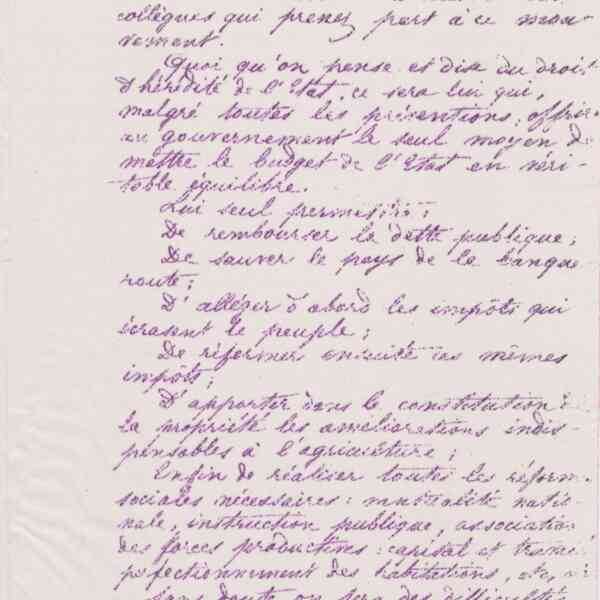 collègues qui prenez part à ce mou-
vement.
Quoi qu'on pense et dise du droit
d'hérédité de l'Etat, ce sera lui qui,
malgré toutes les préventions, offrira
au gouvernement le seul moyen de
mettre le budget de l'Etat en véri-
table équilibre.
Lui seul permettra :
De rembourser la dette publique;
De sauver le pays de la banque-
route;
D'alléger d'abord les impôts qui
écrasent le peuple;
De réformer ensuite ces mêmes
impôts;
D'apporter dans la constitution de
la propriété les améliorations indis-
pensables à l'agriculture;
Enfin de réaliser toutes les réformes
sociales nécessaires : mutualité natio-
nale, instruction publique, association
des forces productives : capital et travail
perfectionnement des habitations, etc,
Sans doute on fera des difficultés